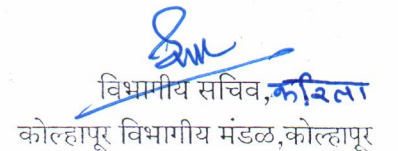 विभागीय सचिव, करिता
कोल्हापूर विभागीय मंडळ,कोल्हापूर